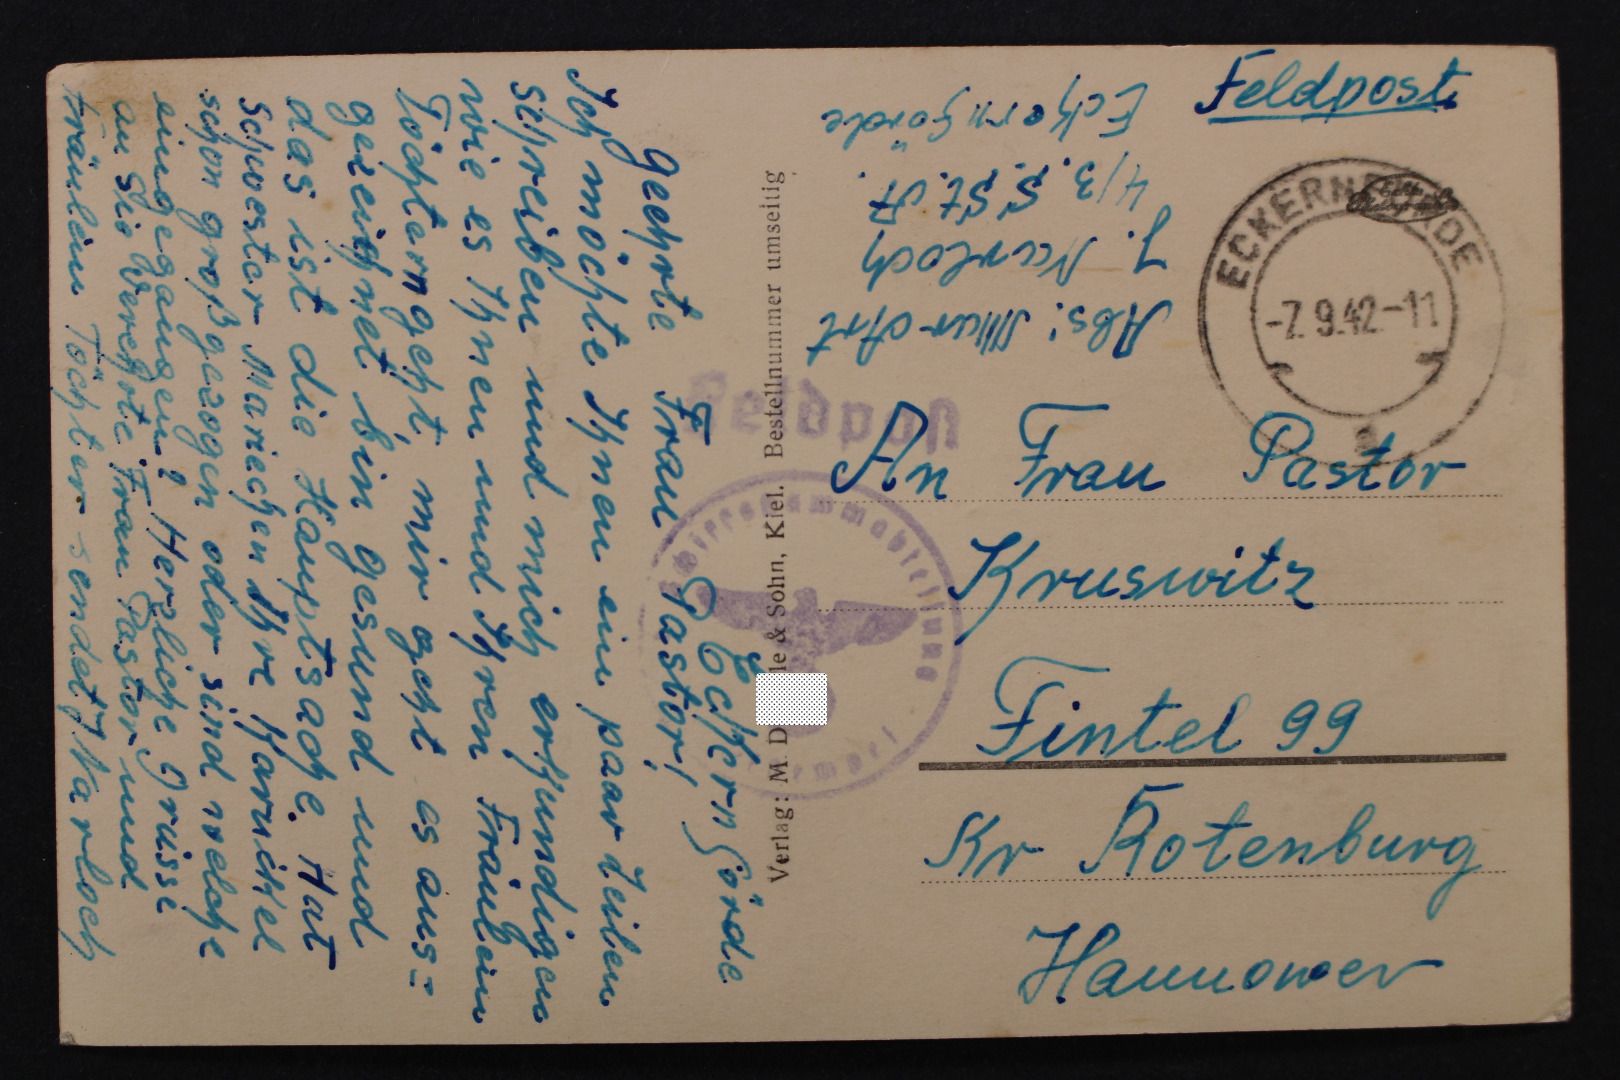 Feldpost
ECKERNFÖRDE
-7.9.42-11
Abs: Mur Art
J. Marloch
4/3. S. St. A.
Eckernförde
Feldpost
An Frau Pastor
Kruswitz
Fintel 99
Kr Rotenburg
Hannover
Schiffsstammabteilung
Verlag: M. D le & Sohn, Kiel. Bestellnummer umseitig
Eckernförde
Geehrte Frau Pastor!
Ich möchte Ihnen ein paar Zeilen
schreiben und mich erkundigen
wie es Ihnen und Ihren Fräulein
Töchtern geht, mir geht es aus=
gezeichnet bin gesund und
das ist die Hauptsache. Hat
Schwester Mariechen Ihre Karnickel
schon großgezogen oder sind welche
eingegangen? Herzliche Grüsse
an Sie Werehrte Frau Pastor und
Fräulein Töchter sendet J Marloch